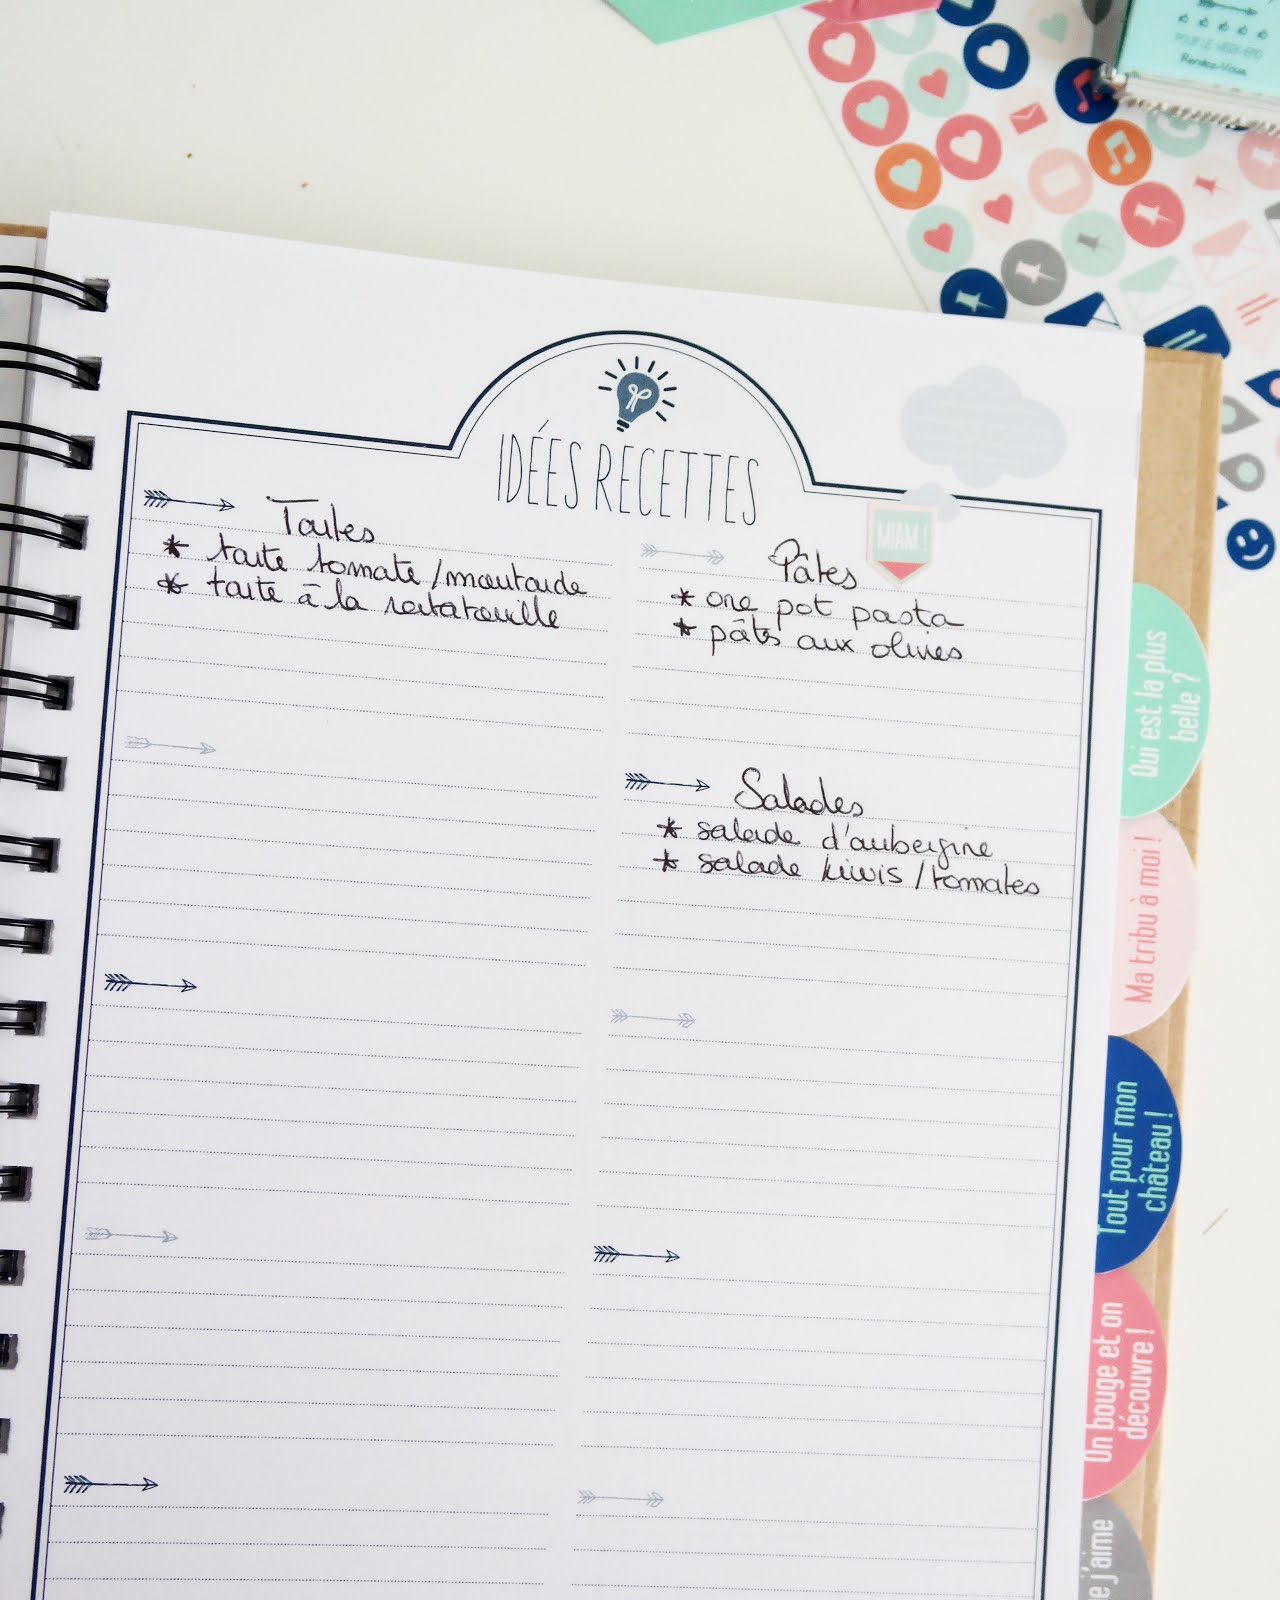 POUR LE WEEK-END
Rendez-Vous
IDÉES RECETTES
MIAM !
Tartes
* tarte tomate/moutarde
* tarte à la ratatouille
Pâtes
* one pot pasta
* pâtes aux olives
Salades
* salade d'aubergine
* salade kiwis/tomates
Qui est la plus
belle ?
Ma tribu à moi !
Tout pour mon
château !
On bouge et on
découvre !
e j'aime